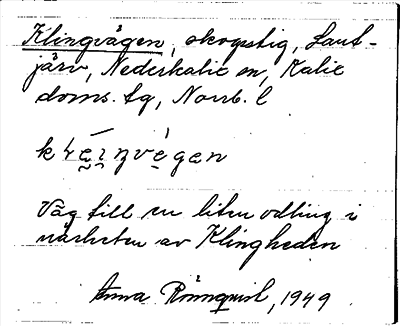 Klingvägen, skogsstig, Laut-
järv, Nederkalix sn, Kalix
doms. tg, Norrb. l
Väg till en liten odling i
närheten av Klingheden
Anna Rönnquist, 1949